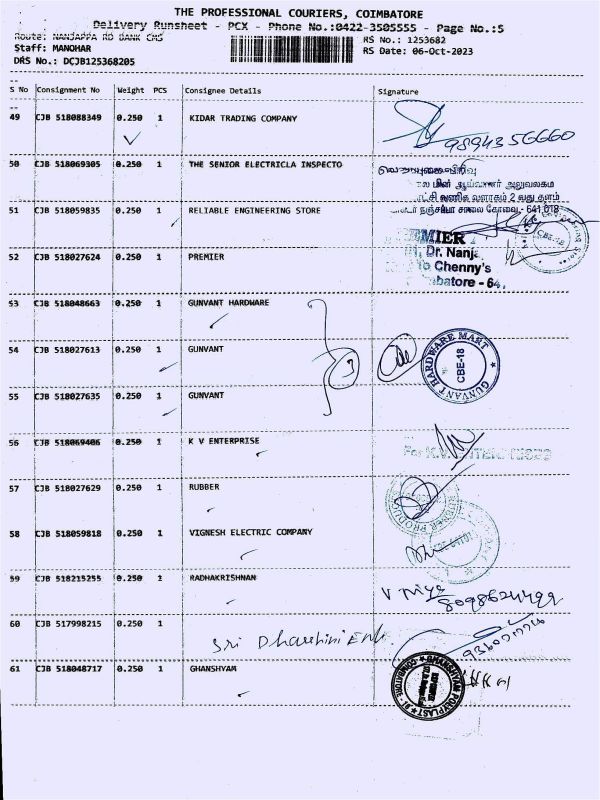 THE PROFESSIONAL COURIERS, COIMBATORE
Delivery Runsheet - PCX - Phone No.:0422-3505555 - Page No.:5
Route: NANJAPPA RD BANK CMS
RS No.: 1253682
Staff: MANOHAR
RS Date: 06-Oct-2023
DRS No.: DCJB125368205
S No Consignment No Weight PCS Consignee Details Signature
49 CJB 518088349 0.250 1 KIDAR TRADING COMPANY
9894356660
50 CJB 518069305 0.250 1 THE SENIOR ELECTRICLA INSPECTO
மின் ஆய்வாளர் அலுவலகம்
வணிக வளாகம் 2 வது தளம்
நஞ்சப்பா சாலை கோவை - 641 018
51 CJB 518059835 0.250 1 RELIABLE ENGINEERING STORE
CBE-18
52 CJB 518027624 0.250 1 PREMIER
PREMIER
Dr. Nanja
To Chenny's
batore - 64
53 CJB 518048663 0.250 1 GUNVANT HARDWARE
54 CJB 518027613 0.250 1 GUNVANT
3
GUNVANT HARDWARE MART
CBE-18
55 CJB 518027635 0.250 1 GUNVANT
56 CJB 518069406 0.250 1 K V ENTERPRISE
For K.V.
57 CJB 518027629 0.250 1 RUBBER
58 CJB 518059818 0.250 1 VIGNESH ELECTRIC COMPANY
59 CJB 518215255 0.250 1 RADHAKRISHNAN
60 CJB 517998215 0.250 1
Sri Dharshini
61 CJB 518048717 0.250 1 GHANSHYAM
GHANSHYAM POLYPLAST